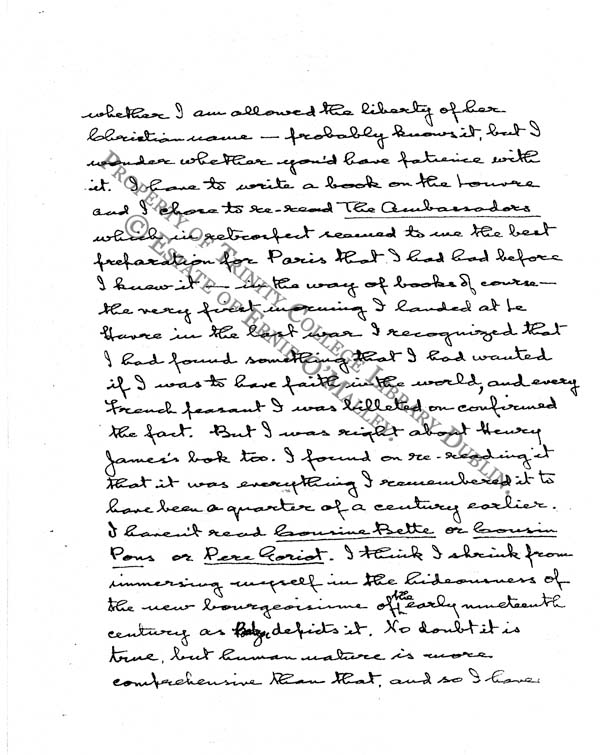 whether I am allowed the liberty of her
Christian name — probably knows it, but I
wonder whether you'd have patience with
it. I have to write a book on the Louvre
and I chose to re-read The Ambassadors
which in retrospect seemed to me the best
preparation for Paris that I had had before
I knew it — in the way of books of course —
the very first morning I landed at Le
Havre in the last war I recognized that
I had found something that I had wanted
if I was to have faith in the world, and every
French peasant I was billeted on confirmed
the fact. But I was right about Henry
James's bok too. I found on re-reading it
that it was everything I remembered it to
have been a quarter of a century earlier.
I haven't read Cousine Bette or Cousin
Pons or Pere Goriot. I think I shrink from
immersing myself in the hideousness of
the new bourgeoisime of the early nineteenth
century as depicts it. No doubt it is
true, but human nature is more
comprehensive than that, and so I have
Property of Trinity College Library Dublin
© Estate of Ernie O'Malley